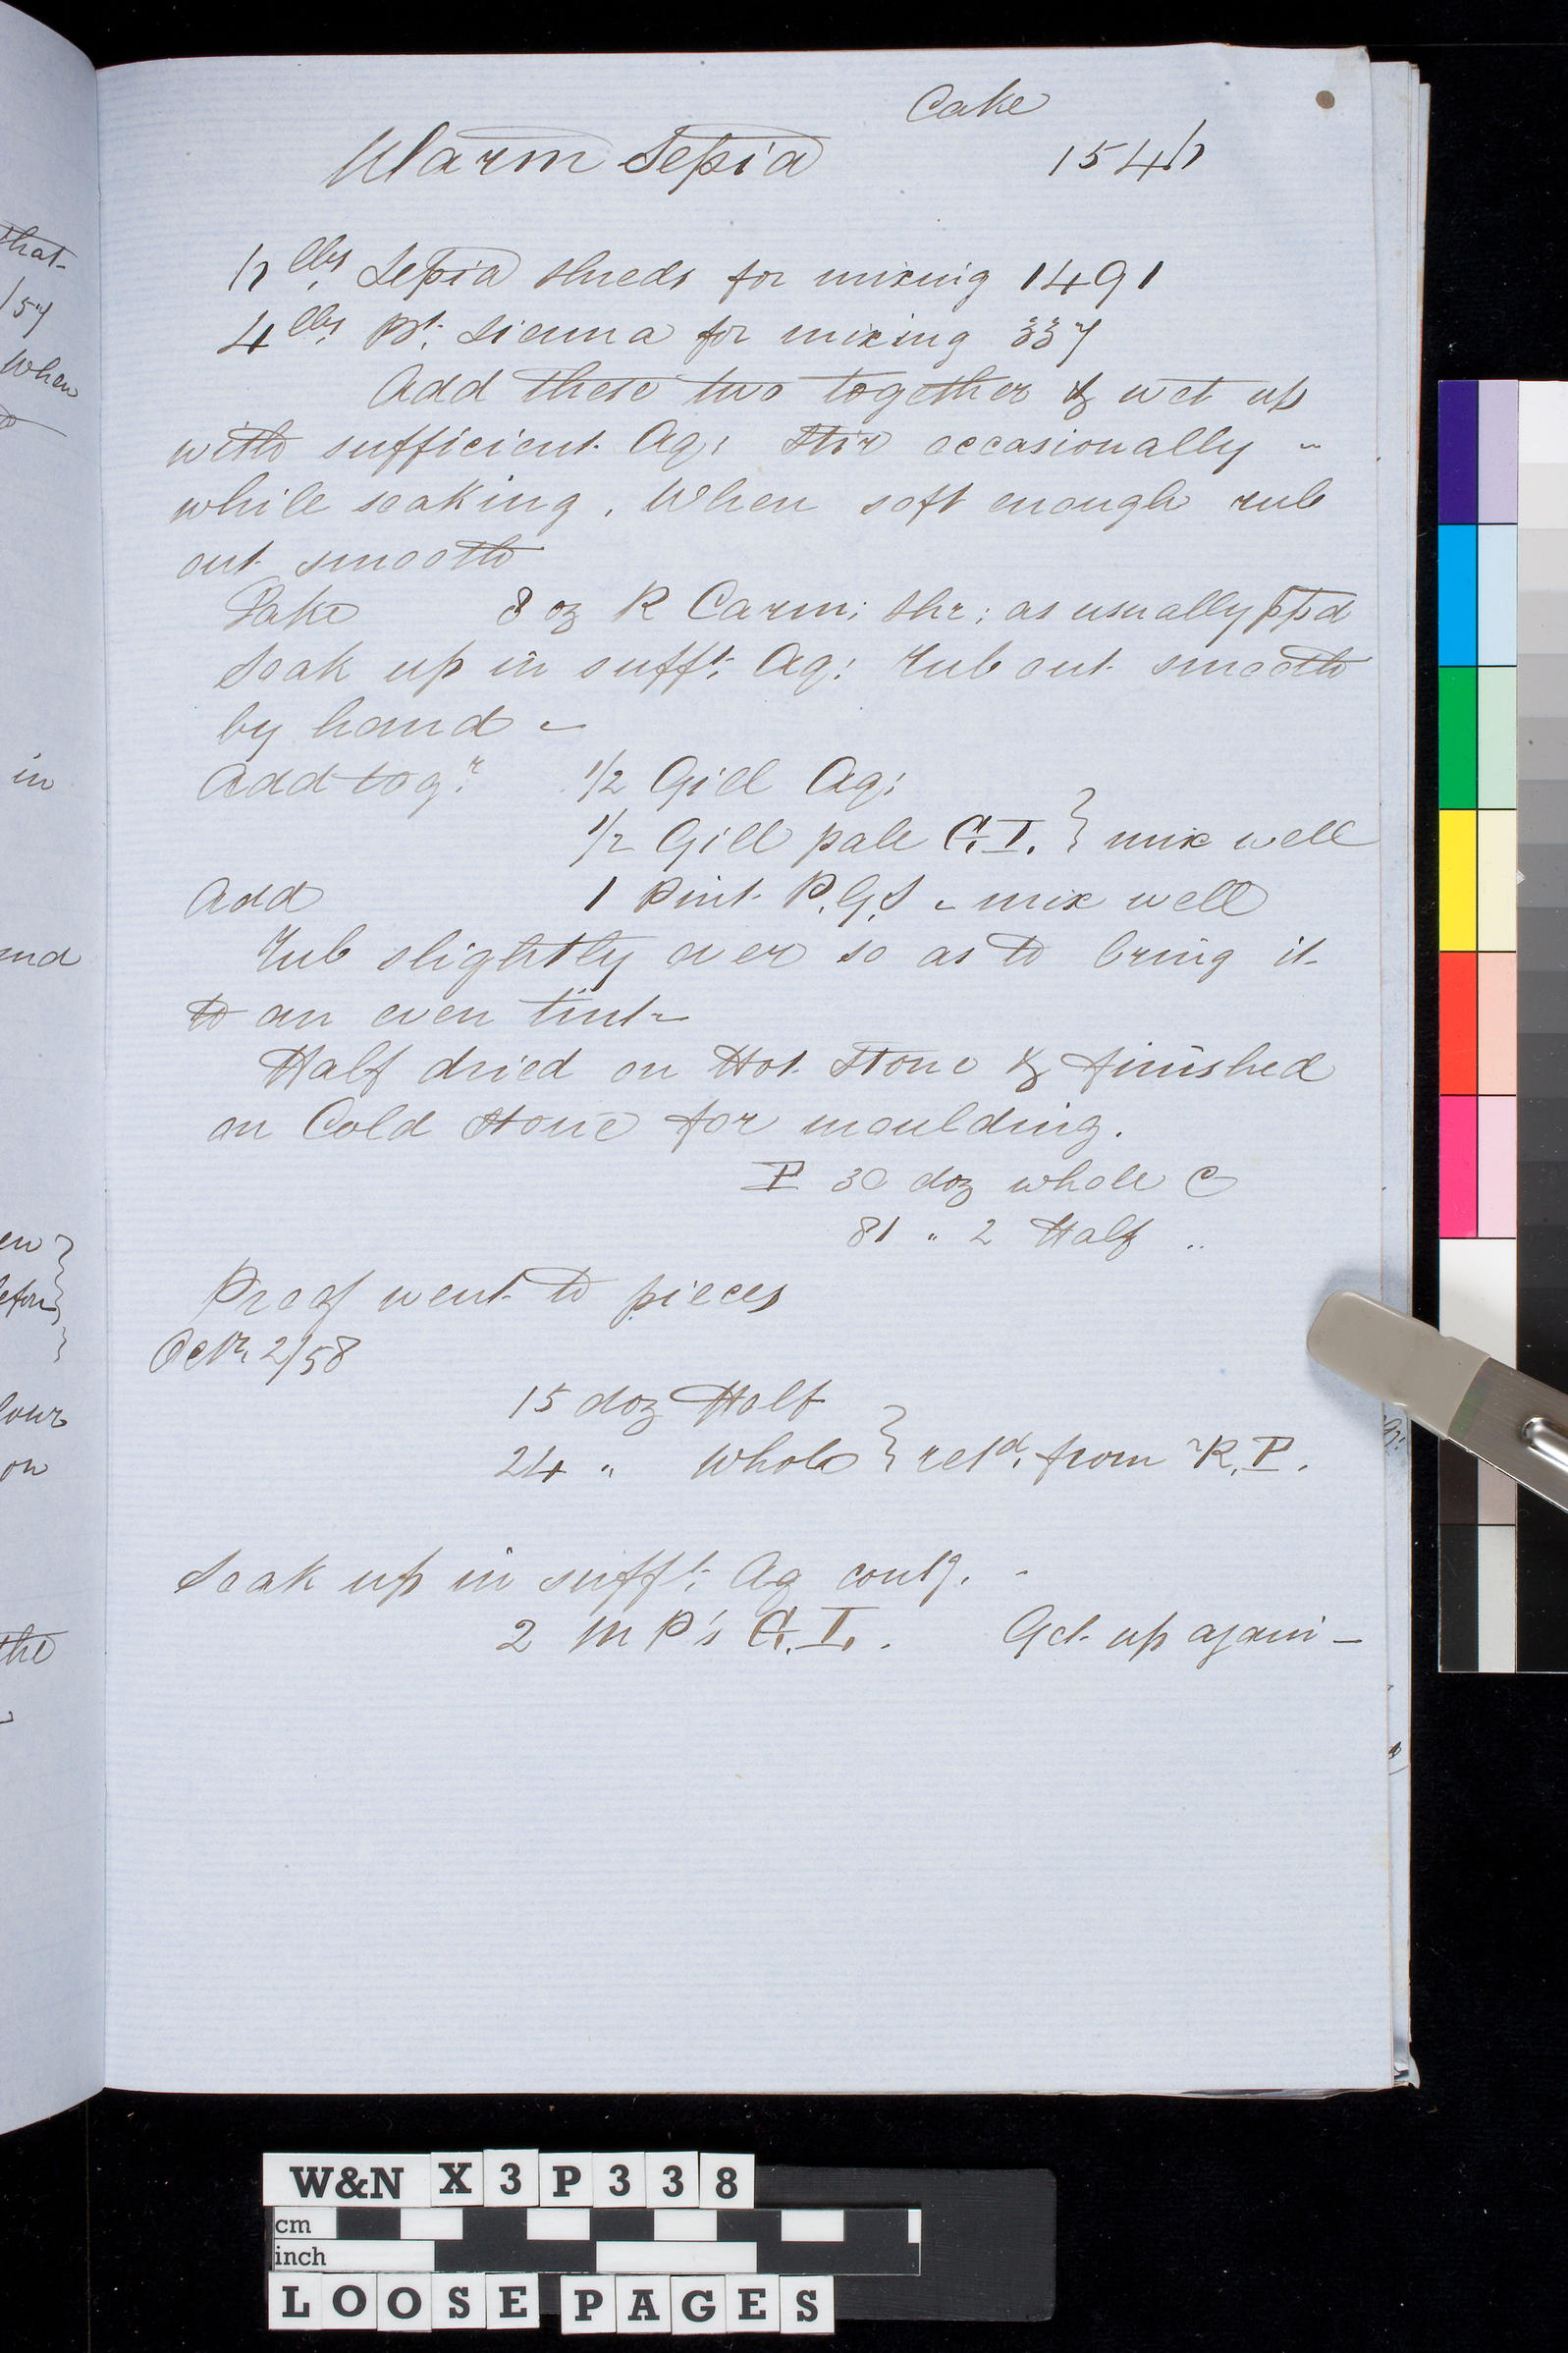 Cake
Warm Sepia 154/7
17 lbs. Sepia shreds for mixing 1491
4 lbs. Bt. Sienna for mixing 337
Add these two together & wet up
with sufficient Aq: Stir occasionally -
while soaking. When soft enough rub
out smooth
Take 8 oz R Carm: Shr: as usually ppd
Soak up in sufft. Aq: rub out smooth
by hand -
Add togr. 1/2 Gill Aq:
1/2 Gill pale G.T. } mix well
Add 1 Pint P.G.S - mix well
Rub slightly over so as to bring it
to an even tint -
Half dried on Hot Stone & finished
on Cold Stone for moulding.
P 30 doz whole C
81 " 2 Half "
Proof went to pieces
Octr. 2/58
15 doz Half
24 " Whole } retd. from R.P.
Soak up in sufft. Aq contg. -
2 M P's G.T. Get up again -
that
/57
When
in
and
en }
our
on
the
W&N X3P338
cm
inch
LOOSE PAGES